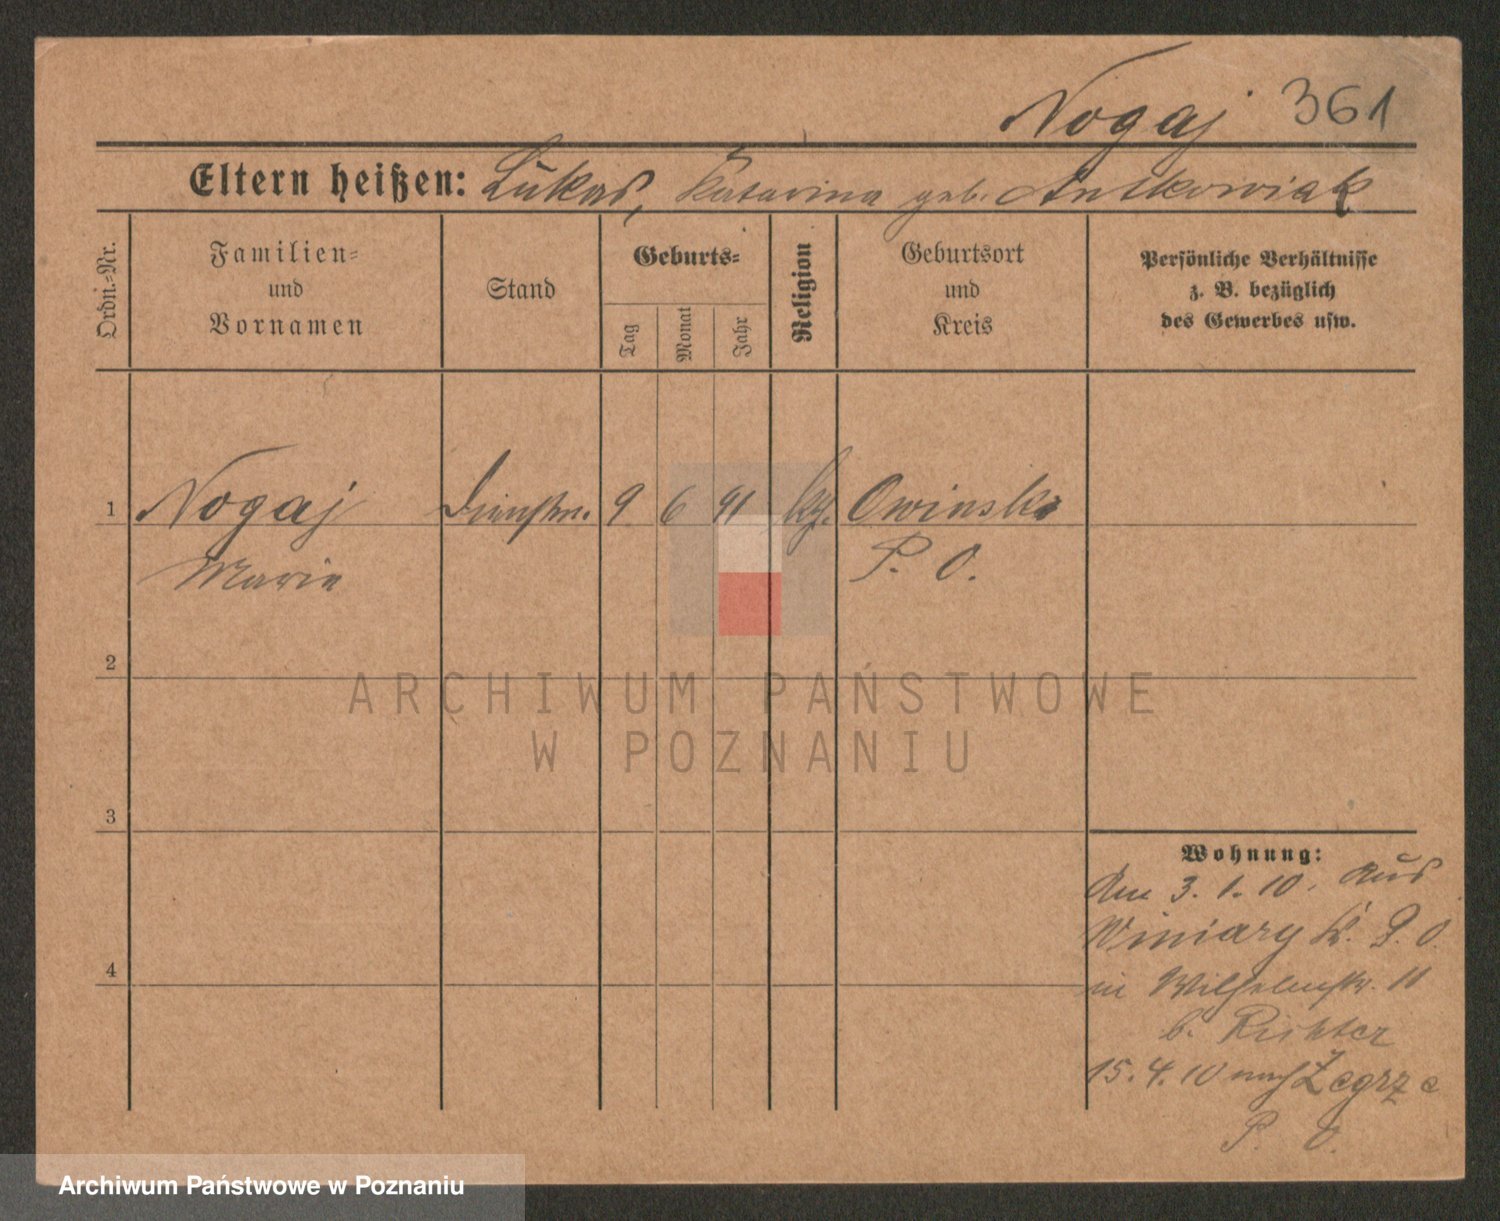 Nogaj 361
Eltern heißen: Lukas, Katarina geb. Antkowiak
Ordn.-Nr.
Familien-
und
Vornamen
Stand
Geburts-
Tag
Monat
Jahr
Religion
Geburtsort
und
Kreis
Persönliche Verhältnisse
z. B. bezüglich
des Gewerbes usw.
1 Nogaj Dienstm. 9 6 91 kth. Owinsk
Marie P. O.
2
ARCHIWUM PAŃSTWOWE
W POZNANIU
3
Wohnung:
Am 3. 1. 10. aus
Winiary K. P. O.
in Wilhelmstr. 11
b. Richter
4
15. 4. 10 nach Zegrze
P. O.
Archiwum Państwowe w Poznaniu